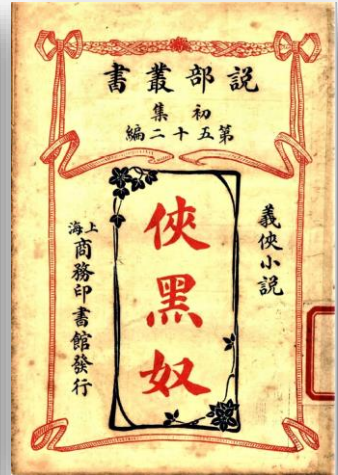 説部叢書
初集
第五十二編
義俠小説
俠黑奴
上海
商務印書館發行